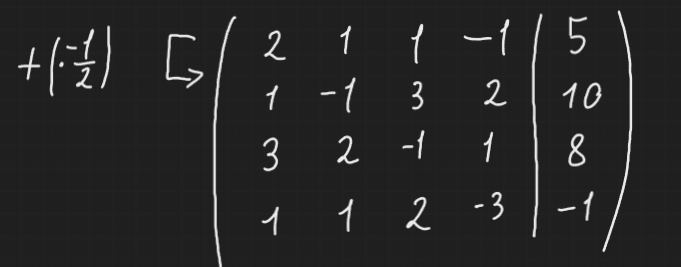 +(·-1/2) ↳ ( 2 1 1 -1 | 5 )
1 -1 3 2 | 10
3 2 -1 1 | 8
1 1 2 -3 | -1